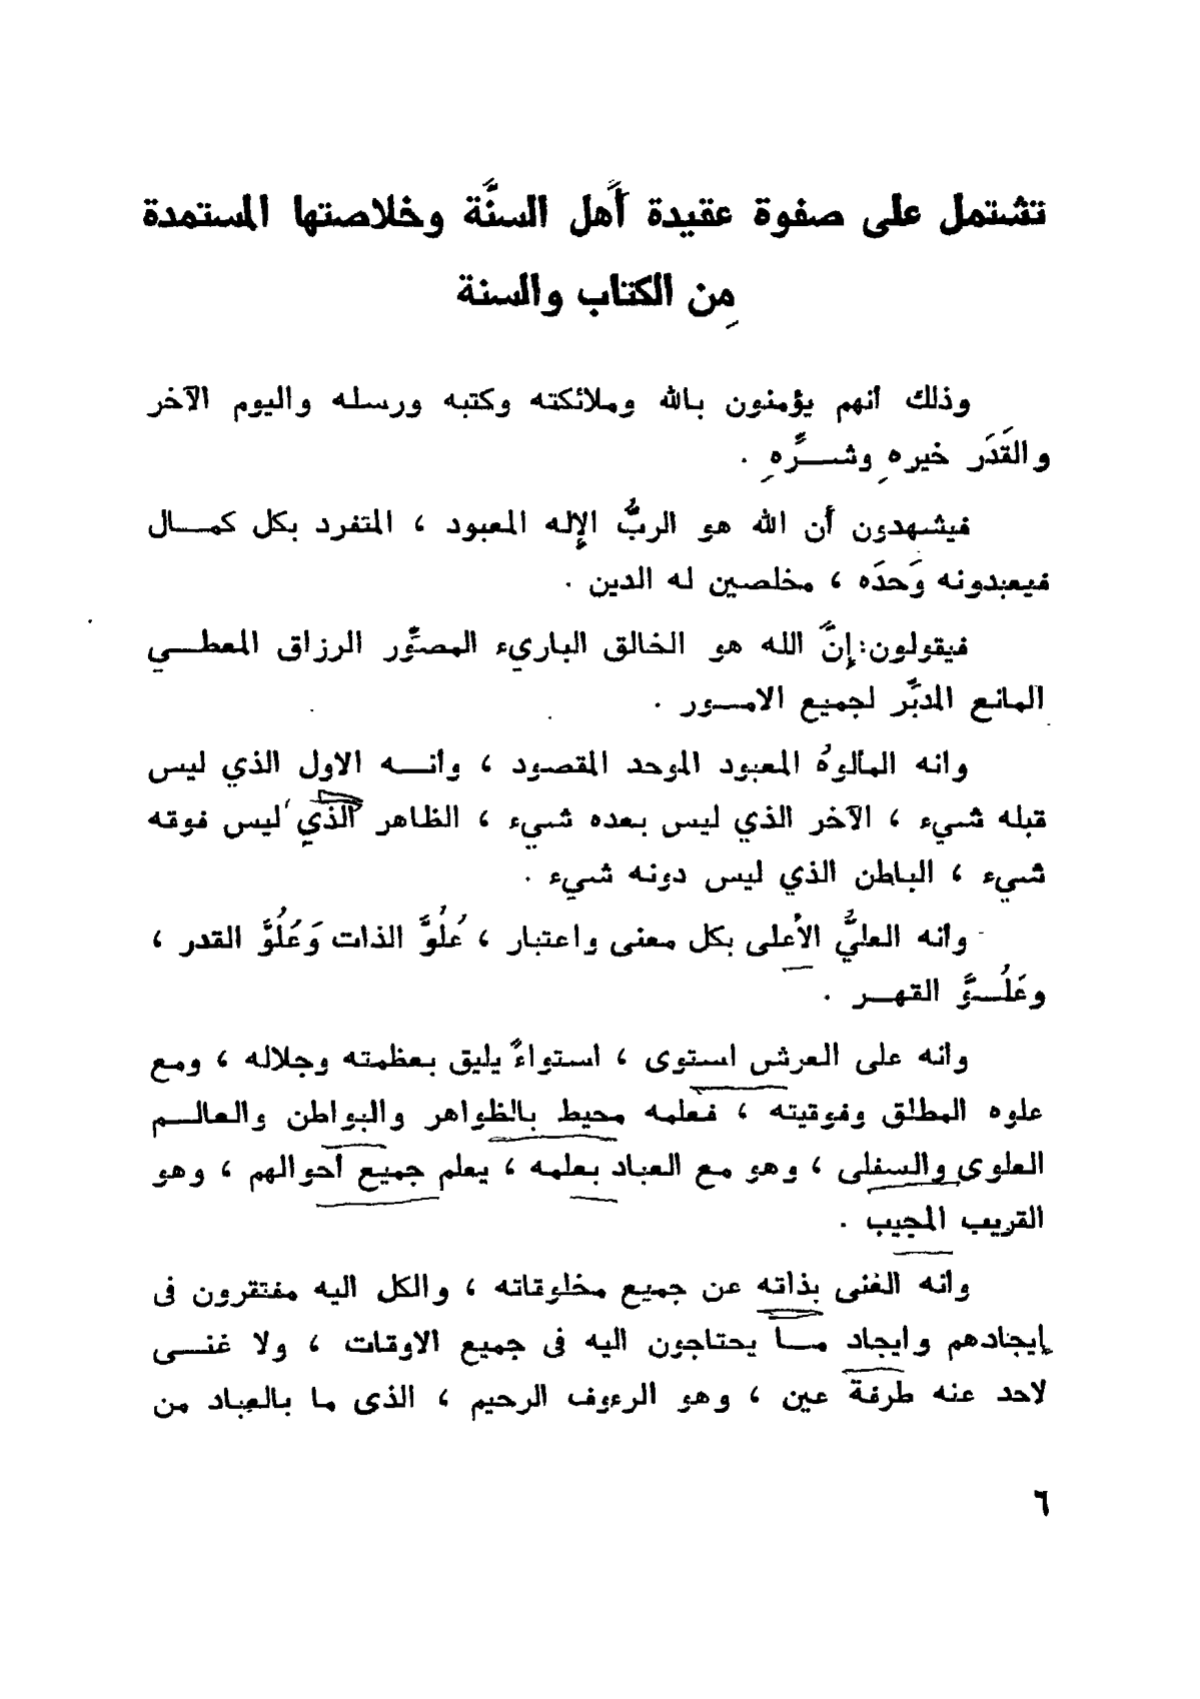 تشتمل على صفوة عقيدة أَهل السنَّة وخلاصتها المستمدة
مِن الكتاب والسنة
وذلك أنهم يؤمنون بالله وملائكته وكتبه ورسله واليوم الآخر
والقَدَر خيره وشـــرَّهِ .
فيشهدون أَن الله هو الربُّ الإِله المعبود ، المتفرد بكل كمـــال
فيعبدونه وَحدَه ، مخلصين له الدين .
فيقولون: إِنَّ الله هو الخالق الباريء المصوِّر الرزاق المعطـــي
المانع المدبِّر لجميع الامـــور .
وانه المألوهُ المعبود الموحد المقصود ، وأنـــه الاول الذي ليس
قبله شيء ، الآخر الذي ليس بعده شيء ، الظاهر الذي ليس فوقه
شيء ، الباطن الذي ليس دونه شيء .
وأنه العليُّ الأعلى بكل معنى واعتبار ، عُلُوَّ الذات وَعُلُوَّ القدر ،
وعَلُـــوَّ القهـــر .
وأنه على العرش استوى ، استواءً يليق بعظمته وجلاله ، ومع
علوه المطلق وفوقيته ، فعلمه محيط بالظواهر والبواطن والعالـــم
العلوى والسفلى ، وهو مع العباد بعلمه ، يعلم جميع أحوالهم ، وهو
القريب المجيب .
وأنه الغنى بذاته عن جميع مخلوقاته ، والكل اليه مفتقرون فى
إيجادهم وايجاد مـــا يحتاجون اليه فى جميع الاوقات ، ولا غنـــى
لاحد عنه طرفة عين ، وهو الرءوف الرحيم ، الذى ما بالعباد من
٦